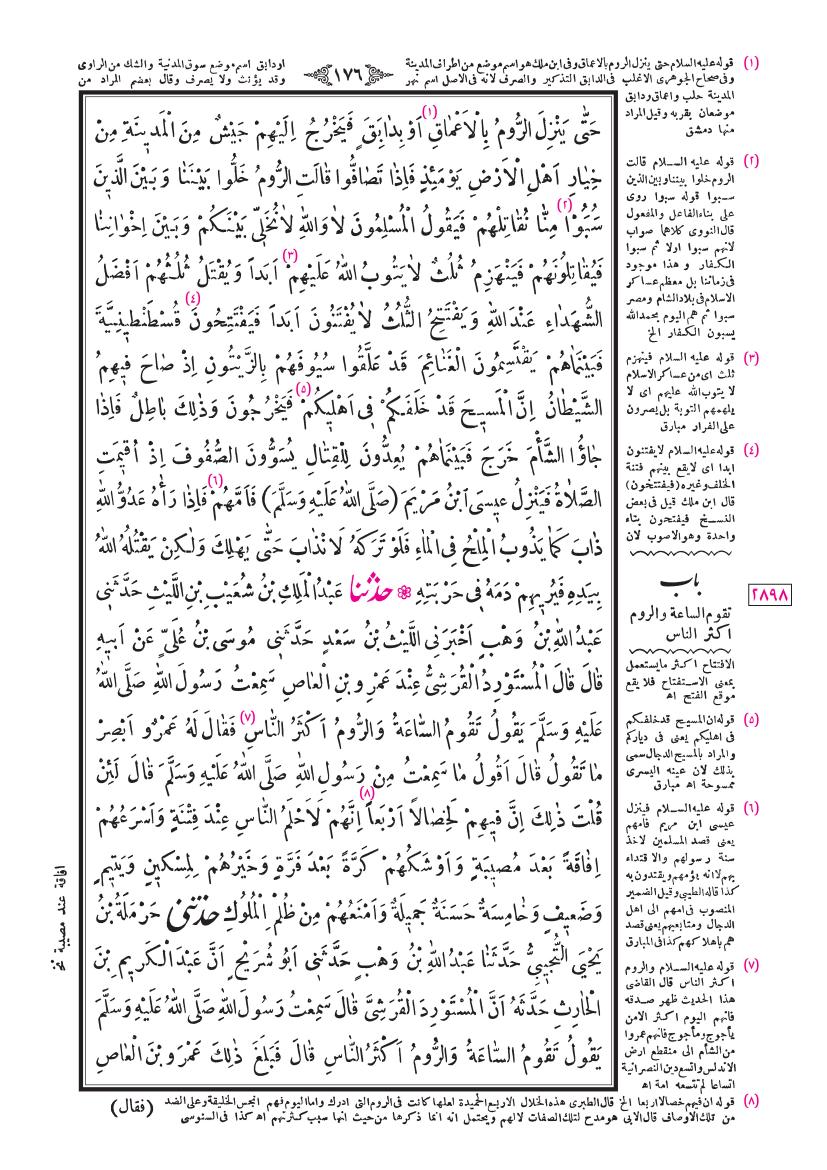 (١) قوله عليه السلام حتى ينزل الروم بالاعماق وفى ابن ملك هو اسم موضع من اطراف المدينة
او دابق اسم موضع سوق المدنية والشك من الراوى
١٧٦
وفى صحاح الجوهرى الاغلب فى الدابق التذكير والصرف لانه فى الاصل اسم نهر
وقد يؤنث ولا يصرف وقال بعضهم المراد من
المدينة حلب واعماق ودابق
موضعان بقربه وقيل المراد
منها دمشق
حَتّٰى يَنْزِلَ الرُّومُ بِالْاَعْمَاقِ (١) اَوْ بِدَابِقَ فَيَخْرُجُ اِلَيْهِمْ جَيْشٌ مِنَ الْمَدِينَةِ مِنْ
خِيَارِ اَهْلِ الْاَرْضِ يَوْمَئِذٍ فَاِذَا تَصَافُّوا قَالَتِ الرُّومُ خَلُّوا بَيْنَنَا وَبَيْنَ الَّذينَ
سُبُوْا (٢) مِنَّا نُقَاتِلْهُمْ فَيَقُولُ الْمُسْلِمُونَ لَا وَاللهِ لَا نُخَلّى بَيْنَكُمْ وَبَيْنَ اِخْوَانِنَا
فَيُقَاتِلُونَهُمْ فَيَنْهَزِمُ ثُلُثٌ لَا يَتُوبُ اللهُ عَلَيْهِمْ (٣) اَبَداً وَيُقْتَلُ ثُلُثُهُمْ اَفْضَلُ
الشُّهَدَاءِ عِنْدَ اللهِ وَيَفْتَتِحُ الثُّلُثُ لَا يُفْتَنُونَ اَبَداً فَيَفْتَتِحُونَ (٤) قُسْطَنْطِينِيَّةَ
فَبَيْنَمَاهُمْ يَقْتَسِمُونَ الْغَنَائِمَ قَدْ عَلَّقُوا سُيُوفَهُمْ بِالزَّيْتُونِ اِذْ صَاحَ فيهِمُ
الشَّيْطَانُ اِنَّ الْمَسيحَ قَدْ خَلَفَكُمْ فى اَهْليكُمْ (٥) فَيَخْرُجُونَ وَذٰلِكَ بَاطِلٌ فَاِذَا
جَاؤُا الشَّأْمَ خَرَجَ فَبَيْنَمَاهُمْ يُعِدُّونَ لِلْقِتَالِ يُسَوُّونَ الصُّفُوفَ اِذْ اُقيمَتِ
الصَّلَاةُ فَيَنْزِلُ عيسَى ابْنُ مَرْيَمَ (صَلَّى اللهُ عَلَيْهِ وَسَلَّمَ) فَاَمَّهُمْ (٦) فَاِذَا رَآهُ عَدُوُّ اللهِ
ذَابَ كَمَا يَذُوبُ الْمِلْحُ فِى الْمَاءِ فَلَوْ تَرَكَهُ لَانْذَابَ حَتّٰى يَهْلِكَ وَلٰكِنْ يَقْتُلُهُ اللهُ
بِيَدِهِ فَيُريهِمْ دَمَهُ فى حَرْبَتِهِ ❁ حَدَّثَنَا عَبْدُ الْمَلِكِ بْنُ شُعَيْبِ بْنِ اللَّيْثِ حَدَّثَنى
عَبْدُ اللهِ بْنُ وَهْبٍ اَخْبَرَنِى اللَّيْثُ بْنُ سَعْدٍ حَدَّثَنى مُوسَى بْنُ عُلَىٍّ عَنْ اَبيهِ
قَالَ قَالَ الْمُسْتَوْرِدُ الْقُرَشِىُّ عِنْدَ عَمْرِو بْنِ الْعَاصِ سَمِعْتُ رَسُولَ اللهِ صَلَّى اللهُ
عَلَيْهِ وَسَلَّمَ يَقُولُ تَقُومُ السَّاعَةُ وَالرُّومُ اَكْثَرُ النَّاسِ (٧) فَقَالَ لَهُ عَمْرٌو اَبْصِرْ
مَا تَقُولُ قَالَ اَقُولُ مَا سَمِعْتُ مِنْ رَسُولِ اللهِ صَلَّى اللهُ عَلَيْهِ وَسَلَّمَ قَالَ لَئِنْ
قُلْتَ ذٰلِكَ اِنَّ فيهِمْ لَخِصَالاً اَرْبَعاً (٨) اِنَّهُمْ لَاَحْلَمُ النَّاسِ عِنْدَ فِتْنَةٍ وَاَسْرَعُهُمْ
اِفَاقَةً بَعْدَ مُصيبَةٍ وَاَوْشَكُهُمْ كَرَّةً بَعْدَ فَرَّةٍ وَخَيْرُهُمْ لِمِسْكينٍ وَيَتيمٍ
وَضَعيفٍ وَخَامِسَةٌ حَسَنَةٌ جَميلَةٌ وَاَمْنَعُهُمْ مِنْ ظُلْمِ الْمُلُوكِ حَدَّثَنى حَرْمَلَةُ بْنُ
يَحْيَى التُّجِيبِىُّ حَدَّثَنَا عَبْدُ اللهِ بْنُ وَهْبٍ حَدَّثَنى اَبُو شُرَيْحٍ اَنَّ عَبْدَ الْكَريمِ بْنَ
الْحَارِثِ حَدَّثَهُ اَنَّ الْمُسْتَوْرِدَ الْقُرَشِىَّ قَالَ سَمِعْتُ رَسُولَ اللهِ صَلَّى اللهُ عَلَيْهِ وَسَلَّمَ
يَقُولُ تَقُومُ السَّاعَةُ وَالرُّومُ اَكْثَرُ النَّاسِ قَالَ فَبَلَغَ ذٰلِكَ عَمْرَو بْنَ الْعَاصِ
(٢) قوله عليه السلام قالت
الروم خلوا بيننا وبين الذين
سبوا قوله سبوا روى
على بناء الفاعل والمفعول
قال النووى كلاهما صواب
لانهم سبوا اولا ثم سبوا
الكفار وهذا موجود
فى زماننا بل معظم عساكر
الاسلام فى بلاد الشام ومصر
سبوا ثم هم اليوم بحمد الله
يسبون الكفار الخ
(٣) قوله عليه السلام فينهزم
ثلث اى من عساكر الاسلام
لا يتوب الله عليهم اى لا
يلهمهم التوبة بل يصرون
على الفرار مبارق
(٤) قوله عليه السلام لا يفتنون
ابدا اى لا يقع بينهم فتنة
الخلف وغيره (فيفتتحون)
قال ابن ملك قيل فى بعض
النسخ فيفتحون بتاء
واحدة وهو الاصوب لان
باب
تقوم الساعة والروم
اكثر الناس
٢٨٩٨
الافتتاح اكثر ما يستعمل
بمعنى الاستفتاح فلا يقع
موقع الفتح اه
(٥) قوله ان المسيح قد خلفكم
فى اهليكم يعنى فى دياركم
والمراد بالمسيح الدجال سمى
بذلك لان عينه اليسرى
ممسوحة اه مبارق
(٦) قوله عليه السلام فينزل
عيسى ابن مريم فامهم
يعنى قصد المسلمين لاخذ
سنة رسولهم والاقتداء
بهم لا انه يؤمهم ويقتدون به
كذا قاله الطيبى وقيل الضمير
المنصوب فى امهم الى اهل
الدجال ومتابعيهم يعنى قصد
هم باهلاكهم كذا فى المبارق
(٧) قوله عليه السلام والروم
اكثر الناس قال القاضى
هذا الحديث ظهر صدقه
فانهم اليوم اكثر الامن
يأجوج ومأجوج فانهم عمروا
من الشأم الى منقطع ارض
الاندلس واتسع دين النصرانية
اتساعا لم تتسعه امة اه
افاقة عند مصيبة نخ
(٨) قوله ان فيهم خصالا اربعا الخ قال الطبرى هذه الخلال الاربع الحميدة لعلها كانت فى الروم التى ادرك واما اليوم فهم انجس الخليقة وعلى الضد
من تلك الاوصاف قال الابى هو مدح لتلك الصفات لا لهم ويحتمل انه انما ذكرها من حيث انها سبب كثرتهم اه كذا فى السنوسى
(فقال)